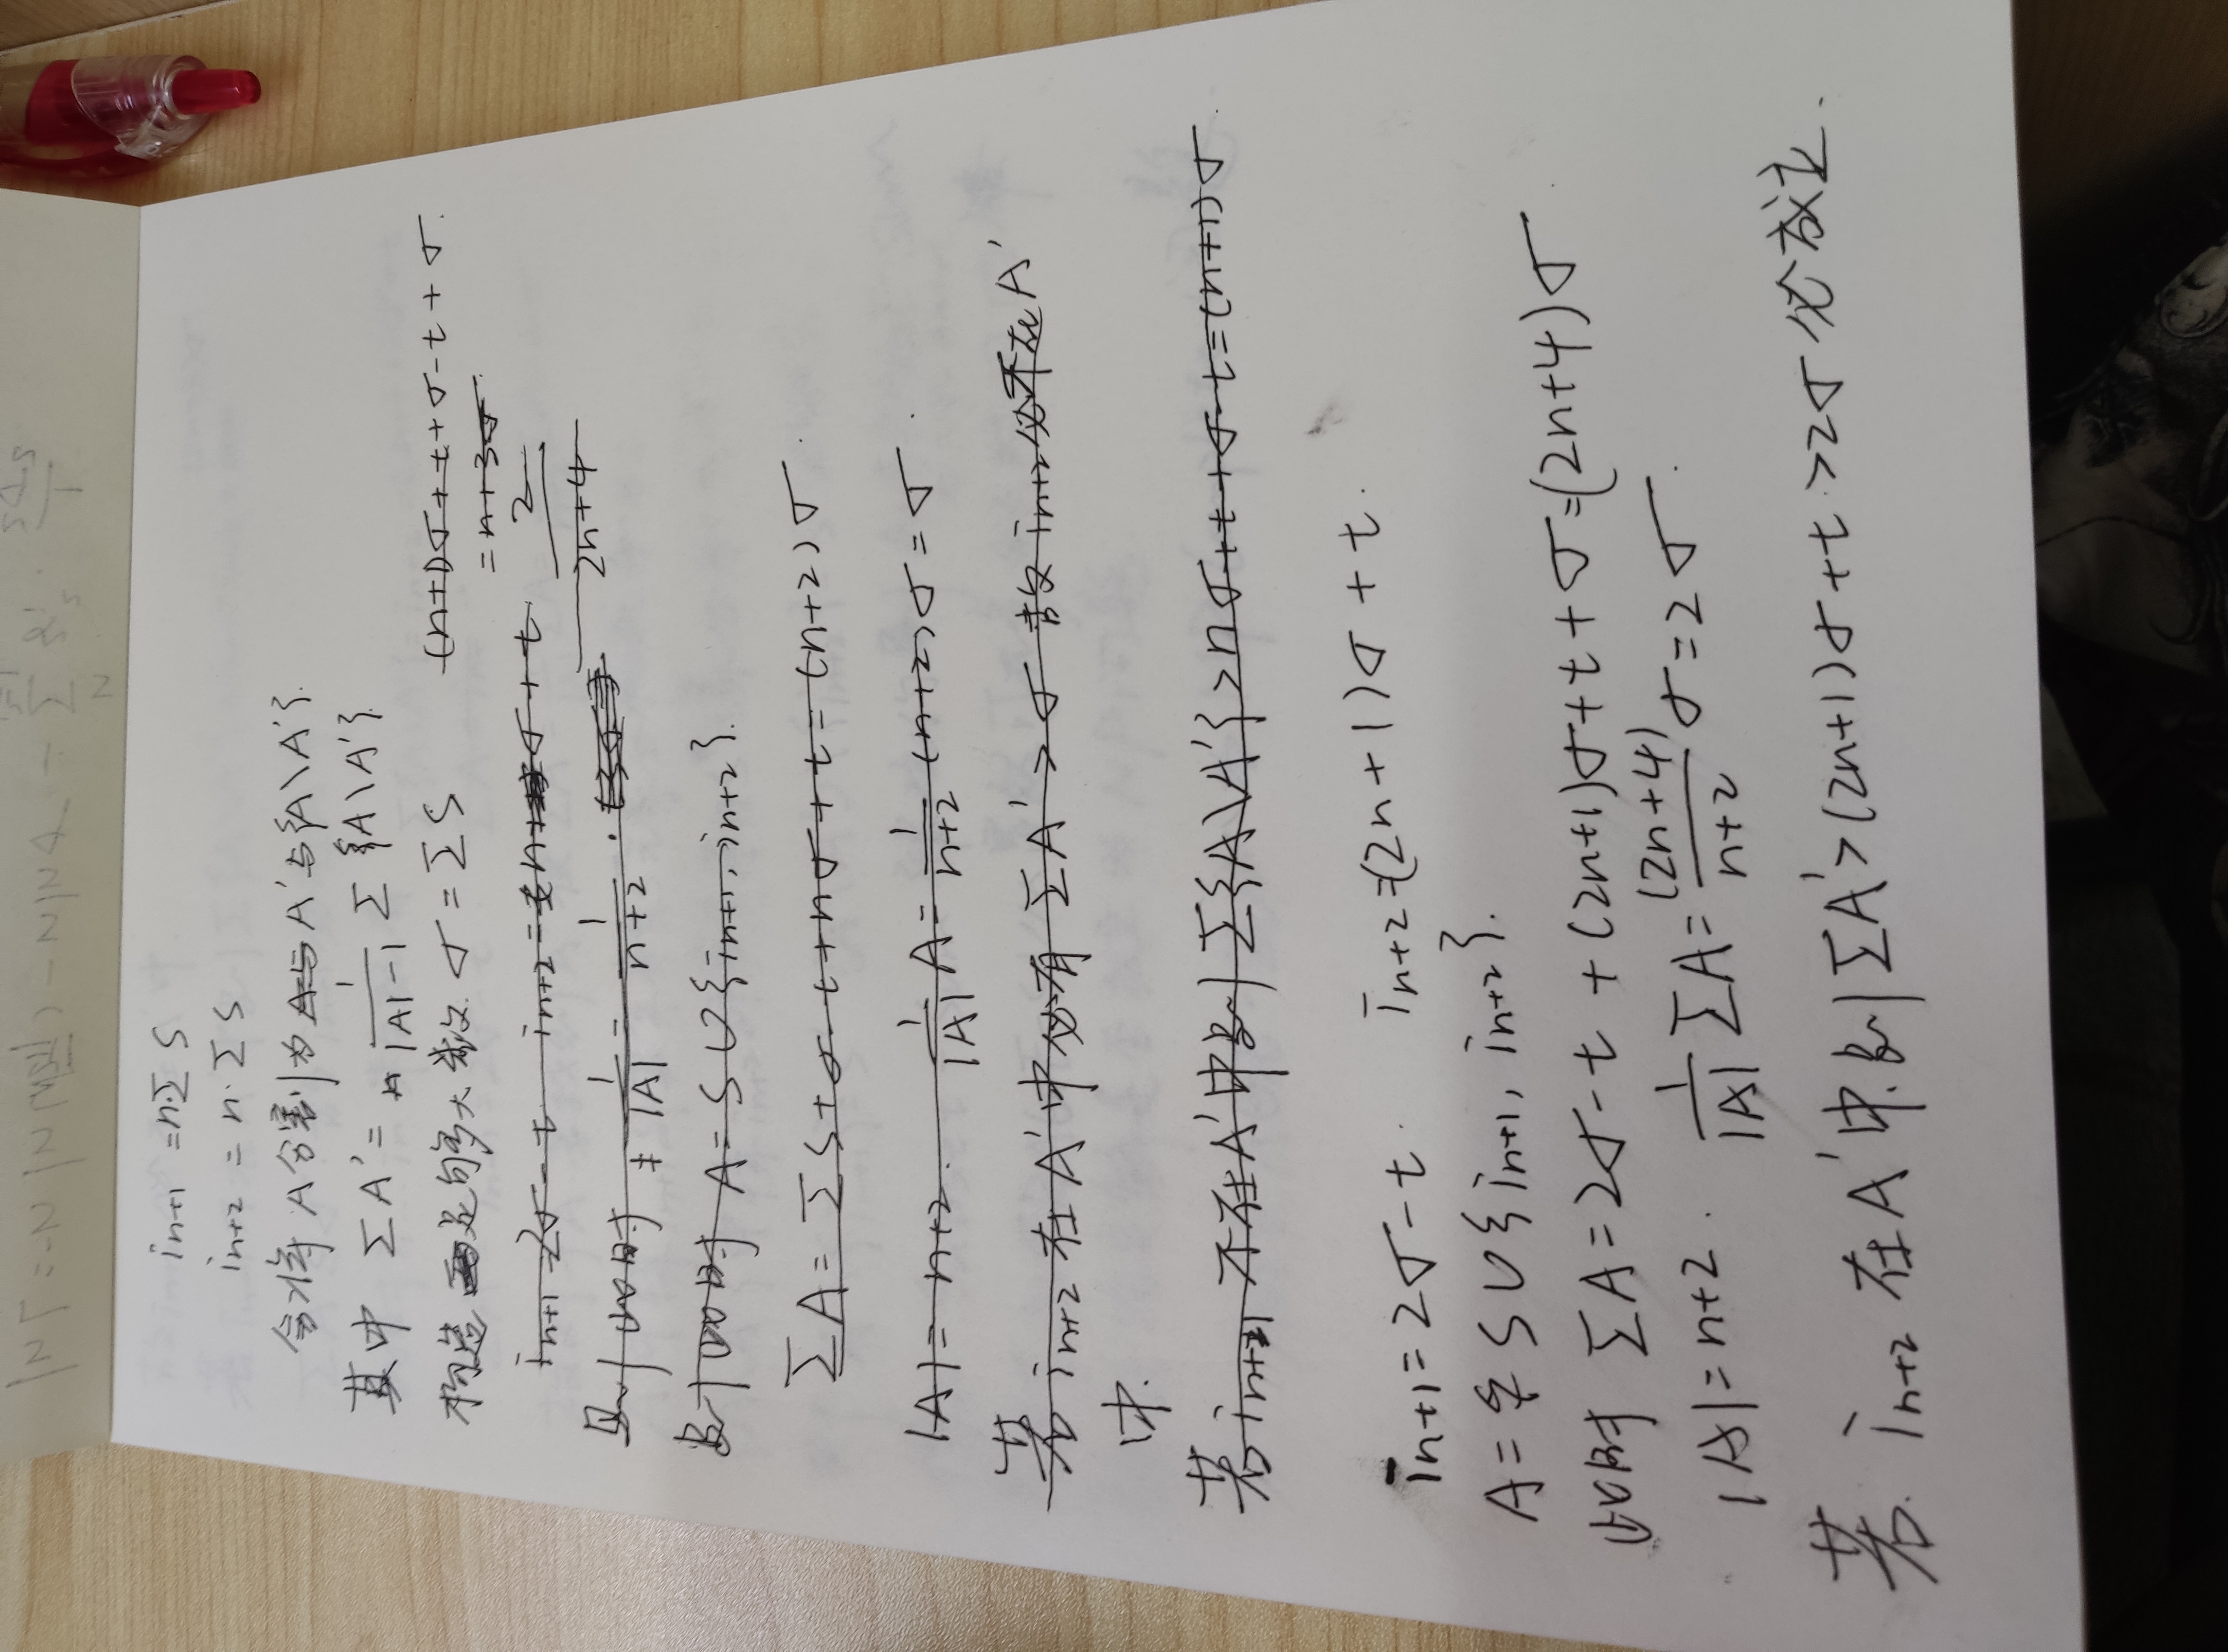 i_{n+1} = n·Σ S
i_{n+2} = n·Σ S
会将 A 分割为 A与 A' 与{A\A'}.
其中 ΣA' = 1/(|A|-1) Σ {A\A'}
构造 足够多大数 σ = ΣS
(n+1)σ+t+σ-t+σ.
= n+3σ
2/(2n+4)
i_{n+1} = 2σ-t i_{n+2} = n+ σ+t
则此时 1/|A| = 1/(n+2) ·
则此时 A = S∪{i_{n+1}, i_{n+2}}.
ΣA = ΣS+σ-t+nσ+t = (n+2)σ.
|A| = n+2. 1/|A| A = 1/(n+2) (n+2)σ = σ.
若 i_{n+2} 在 A' 中必有 ΣA' > σ 故 i_{n+2} 必不在 A'
中.
若 i_{n+1} 不在 A' 中则 Σ{A\A'} > nσ+t+σ-t = (n+1)σ.
i_{n+1} = 2σ-t. i_{n+2} = (2n+1)σ+t.
A = S∪{i_{n+1}, i_{n+2}}.
此时 ΣA = 2σ-t+(2n+1)σ+t+σ = (2n+4)σ.
|A| = n+2. 1/|A| ΣA = (2n+4)/(n+2) σ = 2σ.
若. i_{n+2} 在 A' 中.则 ΣA' > (2n+1)σ+t > 2σ 必成立.